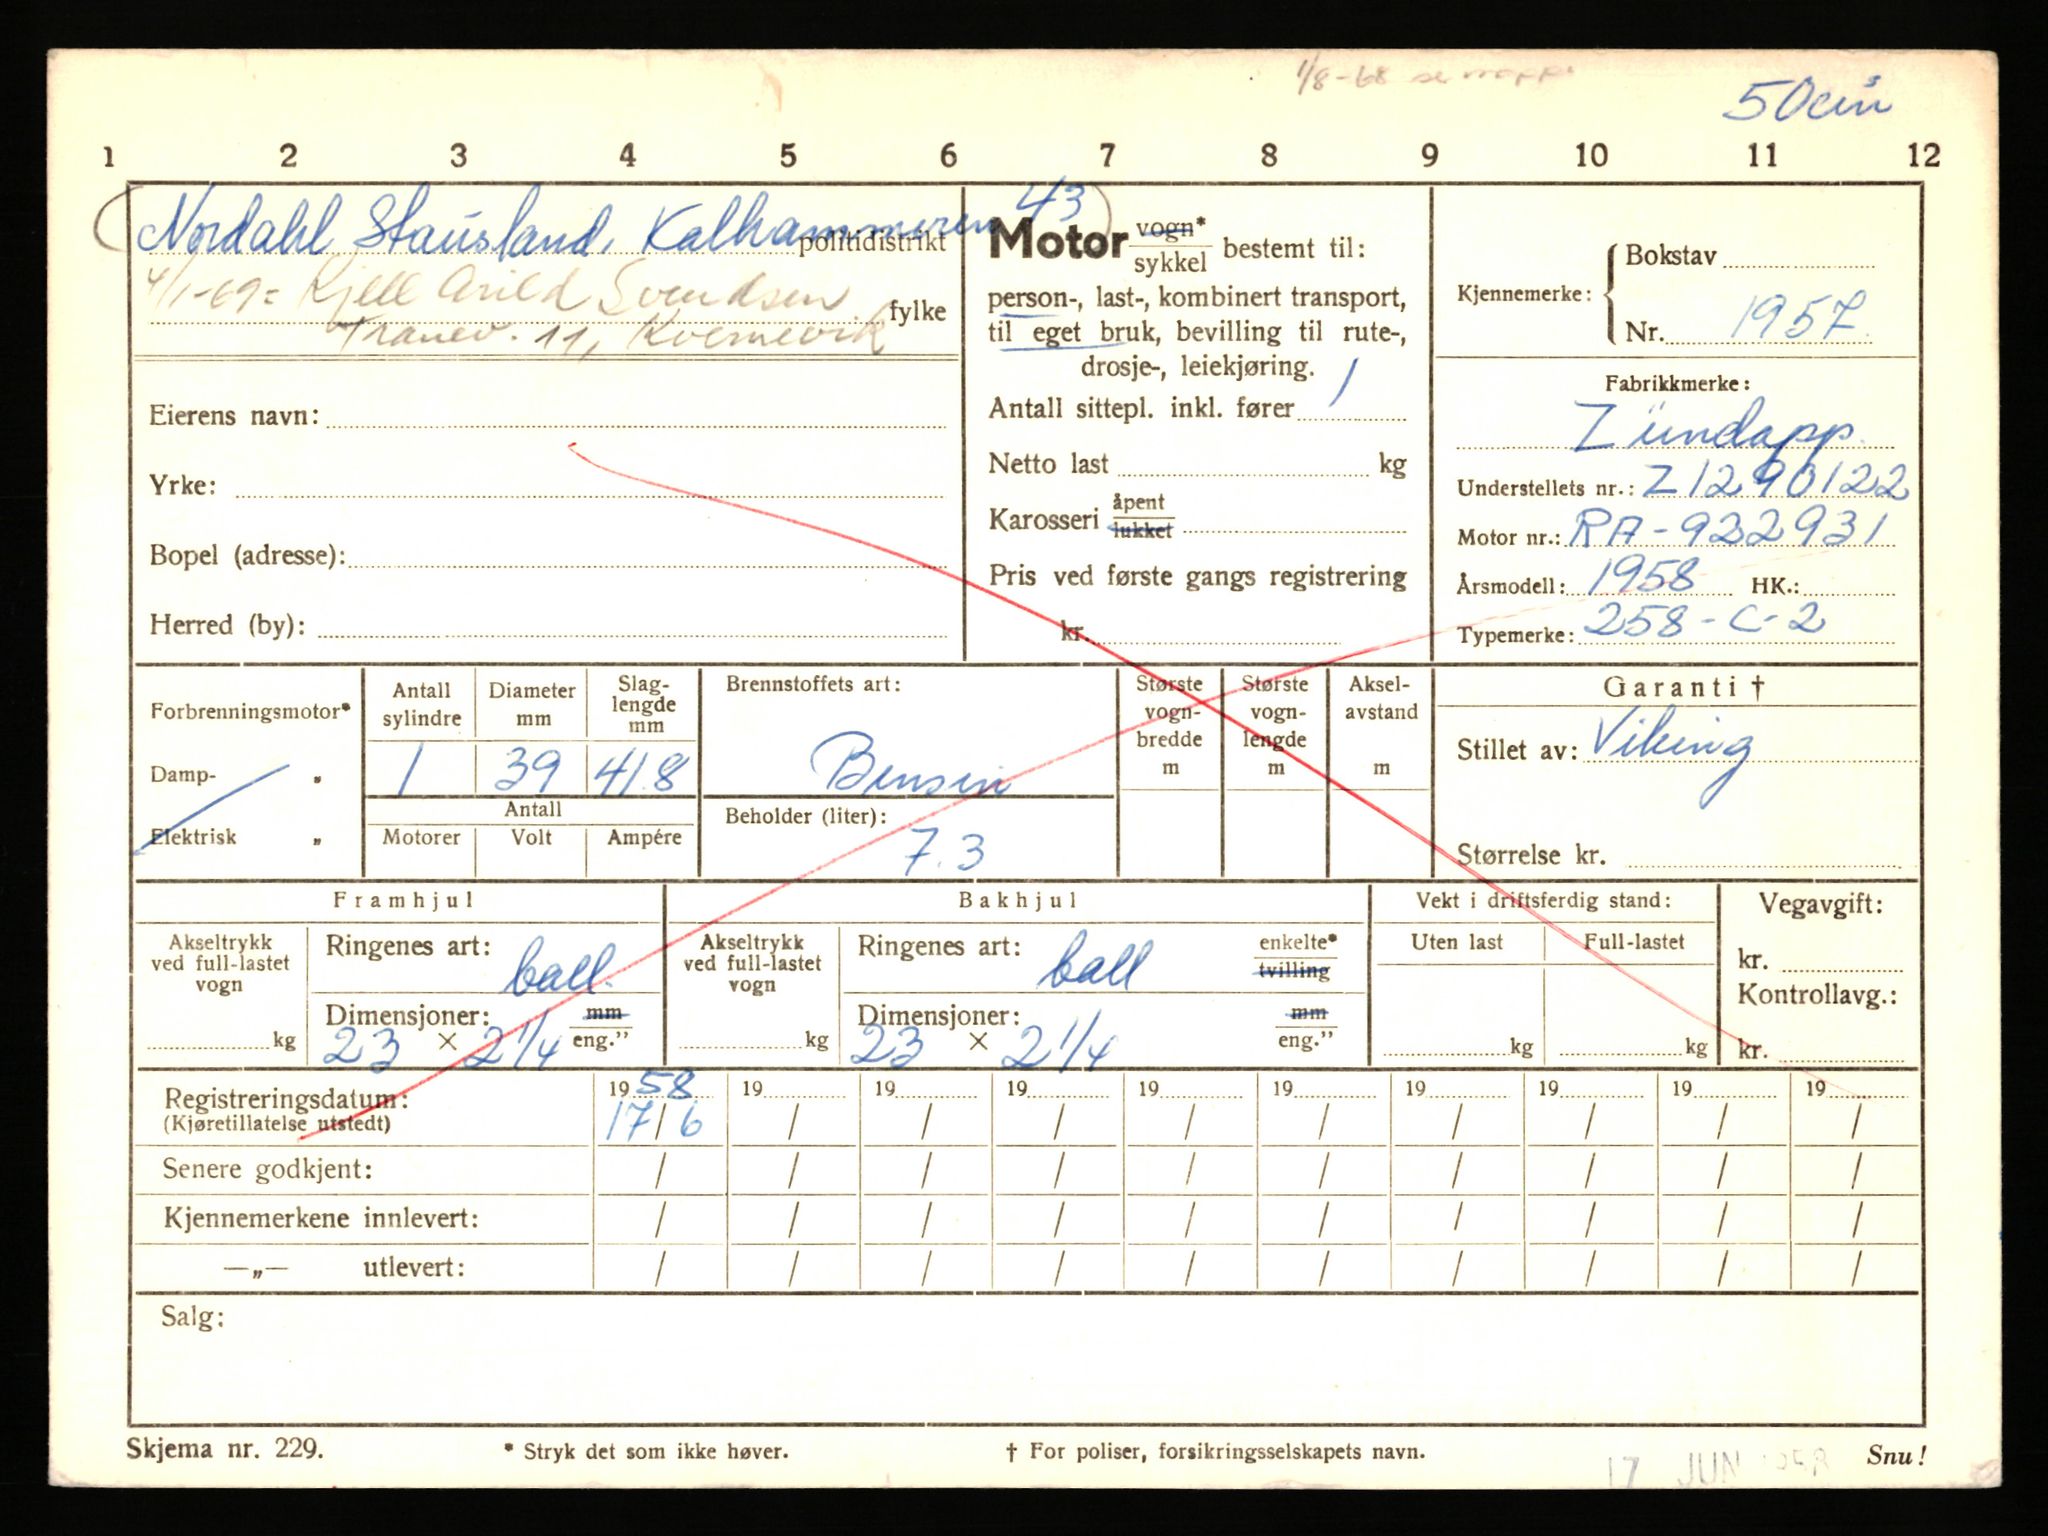 1/8-68 se mappe
50cm³
1 2 3 4 5 6 7 8 9 10 11 12
Nordahl Stausland, Kalhammeren 43
politidistrikt
4/1-69 = Kjell Arild Svendsen
fylke
Tranev. 11, Kvernevik
Eierens navn:
Yrke:
Bopel (adresse):
Herred (by):
Motor vogn* sykkel bestemt til:
person-, last-, kombinert transport,
til eget bruk, bevilling til rute-,
drosje-, leiekjøring.
Antall sittepl. inkl. fører 1
Netto last kg
Karosseri åpent lukket
Pris ved første gangs registrering
kr.
Kjennemerke: Bokstav
Nr. 1957
Fabrikkmerke:
Zündapp
Understellets nr.: Z1290122
Motor nr.: RA-922931
Årsmodell: 1958 HK.:
Typemerke: 258-C-2
Forbrenningsmotor*
Damp- „
Elektrisk „
Antall sylindre
Diameter mm
Slag-
lengde
mm
1 39 41.8
Antall
Motorer Volt Ampére
Brennstoffets art:
Bensin
Beholder (liter):
7.3
Største
vogn-
bredde
m
Største
vogn-
lengde
m
Aksel-
avstand
m
Garanti †
Stillet av: Viking
Størrelse kr.
Framhjul
Akseltrykk
ved full-lastet
vogn
kg
Ringenes art: ball.
Dimensjoner: mm
23 × 2 1/4 eng.”
Bakhjul
Akseltrykk
ved full-lastet
vogn
kg
Ringenes art: ball enkelte* tvilling
Dimensjoner: mm
23 × 2 1/4 eng.”
Vekt i driftsferdig stand:
Uten last Full-lastet
kg kg
Vegavgift:
kr.
Kontrollavg.:
kr.
Registreringsdatum: 1958 19 19 19 19 19 19 19 19 19
(Kjøretillatelse utstedt) 17/6 / / / / / / / / /
Senere godkjent: / / / / / / / / / /
Kjennemerkene innlevert: / / / / / / / / / /
—„— utlevert: / / / / / / / / / /
Salg:
Skjema nr. 229. * Stryk det som ikke høver. † For poliser, forsikringsselskapets navn. Snu!
17 JUN 1958